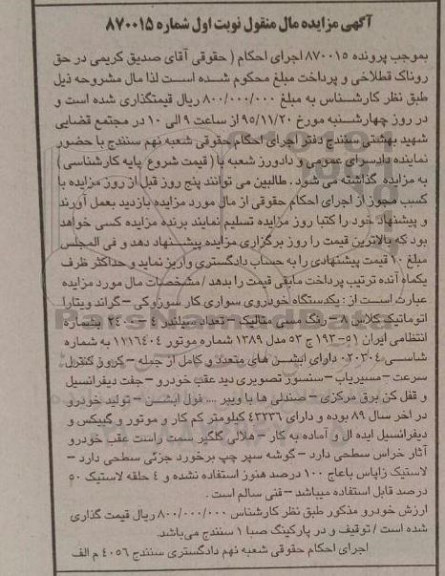 آگهی مزایده مال منقول نوبت اول شماره ۸۷۰۰۱۵
بموجب پرونده ۸۷۰۰۱۵ اجرای احکام ( حقوقی آقای صدیق کریمی در حق
روناک قطلاخی و پرداخت مبلغ محکوم شده است لذا مال مشروحه ذیل
طبق نظر کارشناس به مبلغ ۸۰۰/۰۰۰/۰۰۰ ریال قیمتگذاری شده است و
در روز چهارشنبه مورخ ۹۵/۱۱/۲۰ از ساعت ۹ الی ۱۰ در مجتمع قضایی
شهید بهشتی سنندج دفتر اجرای احکام حقوقی شعبه نهم سنندج با حضور
نماینده دادسرای عمومی و دادورز شعبه با ( قیمت شروع پایه کارشناسی )
به مزایده گذاشته می شود . طالبین می توانند پنج روز قبل از روز مزایده با
کسب مجوز از اجرای احکام حقوقی از مال مورد مزایده بازدید بعمل آورند
و پیشنهاد خود را کتبا روز مزایده تسلیم نمایند برنده مزایده کسی خواهد
بود که بالاترین قیمت را روز برگزاری مزایده پیشنهاد دهد و فی المجلس
مبلغ ۱۰ قیمت پیشنهادی را به حساب دادگستری واریز نماید و حداکثر ظرف
یکماه آنده ترتیب پرداخت مابقی قیمت را بدهد / مشخصات مال مورد مزایده
عبارت است از : یکدستگاه خودروی سواری کار سوزوکی – گراند ویتارا
اتوماتیک کلاس ۸ – رنگ مسی متالیک – تعداد سیلندر ۴ – ۲۴۰۰ بشماره
انتظامی ایران ۵۱–۱۹۳ ج ۵۳ مدل ۱۳۸۹ شماره موتور ۱۱۱۶۴۰۴ به شماره
شاسی ۰۲۰۳۰۴ دارای ابشن های متعدد و کامل از جمله – کروز کنترل
سرعت – مسیریاب – سنسور تصویری دید عقب خودرو – جفت دیفرانسیل
و قفل کن برق مرکزی – صندلی ها با ویبر .... فول ابشن – تولید خودرو
در اخر سال ۸۹ بوده و دارای ۴۳۲۳۶ کیلومتر کم کار و موتور و گیبکس و
دیفرانسیل ایده ال و آماده به کار – هلالی گلگیر سمت راست عقب خودرو
آثار خراس سطحی دارد – گوشه سپر چپ برخورد جزئی سطحی دارد –
لاستیک زاپاس باعاج ۱۰۰ درصد هنوز استفاده نشده و ۴ حلقه لاستیک ۵۰
درصد قابل استفاده میباشد – فنی سالم است .
ارزش خودرو مذکور طبق نظر کارشناس ۸۰۰/۰۰۰/۰۰۰ ریال قیمت گذاری
شده است / توقیف و در پارکینگ صبا ۱ سنندج می‌باشد.
اجرای احکام حقوقی شعبه نهم دادگستری سنندج ۴۰۵۶ م الف